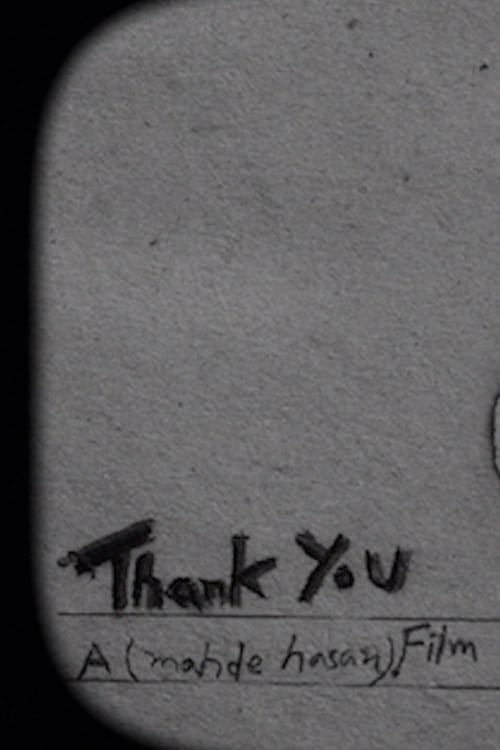 Thank You
A (mahde hasan) Film